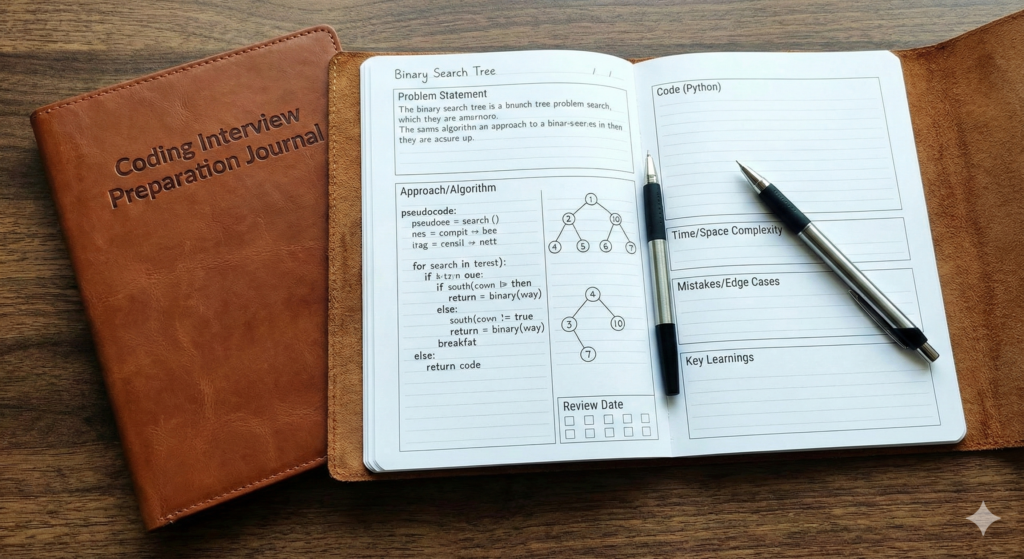 Coding Interview
Preparation Journal
Binary Search Tree
/ /
Problem Statement
The binary search tree is a bnunch tree problem search,
which they are amørnoro.
The sams algorithn an approach to a binar-seer:es in then
they are acsure up.
Approach/Algorithm
pseudocode:
pseudoee = search ()
nes = compit → bee
irag = censil → nett
for search in terest):
if oue:
if south(cown |> then
return = binary(way)
else:
south(cown != true
return = binary(way)
breakfat
else:
return code
1
2 10
4 5 6 7
4
3 10
7
Review Date
Code (Python)
Time/Space Complexity
Mistakes/Edge Cases
Key Learnings